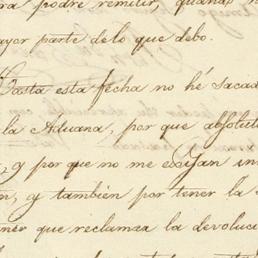 ra podré remitir, quanas
ayor parte de lo que debo.
Hasta esta fecha no hé sacad
la Aduana, por que absolut
, y por que no me exijan in
n, y también por tener la
ner que reclamar la devoluci